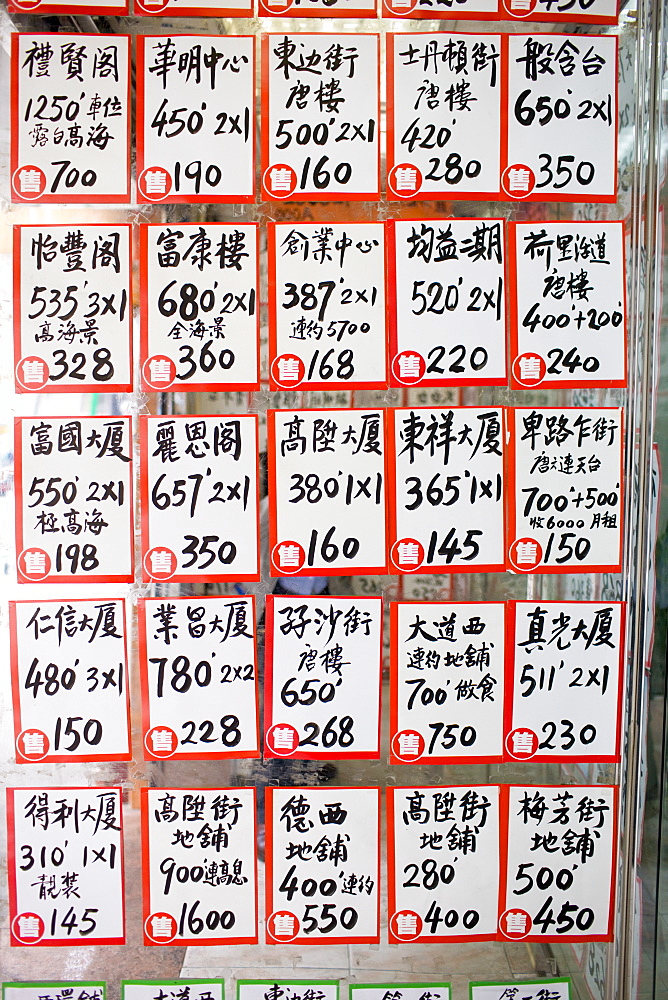 禮賢閣
1250' 車位
露台高海
售 700
華明中心
450' 2x1
售 190
東边街
唐樓
500' 2x1
售 160
士丹頓街
唐樓
420'
售 280
般含台
650' 2x1
售 350
怡豐閣
535' 3x1
高海景
售 328
富康樓
680' 2x1
全海景
售 360
創業中心
387' 2x1
連約5700
售 168
均益二期
520' 2x1
售 220
荷里活道
唐樓
400'+200'
售 240
富國大厦
550' 2x1
極高海
售 198
麗恩阁
657' 2x1
售 350
高陞大厦
380' 1x1
售 160
東祥大厦
365' 1x1
售 145
卑路乍街
唐六連天台
700'+500'
收6000月租
售 150
仁信大厦
480' 3x1
售 150
業昌大厦
780' 2x2
售 228
孖沙街
唐樓
650'
售 268
大道西
連約地舖
700' 做食
售 750
真光大厦
511' 2x1
售 230
得利大厦
310' 1x1
靚装
售 145
高陞街
地舖
900' 連高息
售 1600
德西
地舖
400' 連約
售 550
高陞街
地舖
280'
售 400
梅芳街
地舖
500'
售 450
大道西
東边街